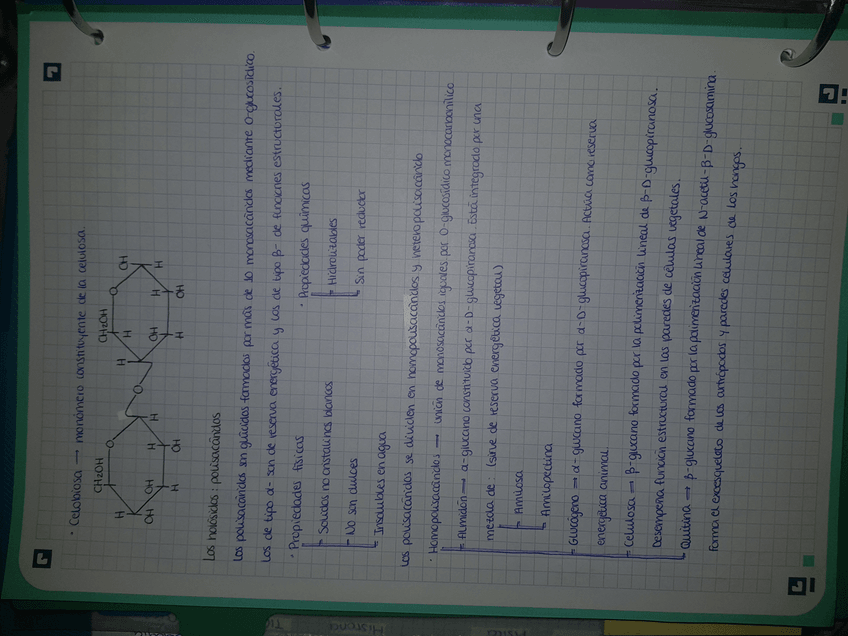 · Celobiosa → monómero constituyente de la celulosa.
CH₂OH CH₂OH
O O OH
H H H H
O
OH H OH H
OH H
H OH H OH
Los holósidos: polisacáridos
Los polisacáridos son glúcidos formados por más de 10 monosacáridos mediante O-glucosídico.
Los de tipo α- son de reserva energética y los de tipo β- de funciones estructurales.
· Propiedades físicas
Sólidos no cristalinos blancos
No son dulces
Insolubles en agua
· Propiedades químicas
Hidrolizables
Sin poder reductor
Los polisacáridos se dividen en homopolisacárido y heteropolisacárido
· Homopolisacáridos → unión de monosacáridos iguales por O-glucosídico monocarbonílico
Almidón → α-glucano constituido por α-D-glucopiranosa. Está integrado por una
mezcla de: (sirve de reserva energética vegetal)
Amilosa
Amilopectina
Glucógeno → α-glucano formado por α-D-glucopiranosa. Actúa como reserva
energética animal.
Celulosa → β-glucano formado por la polimerización lineal de β-D-glucopiranosa.
Desempeña función estructural en las paredes de células vegetales.
Quitina → β-glucano formado por la polimerización lineal de N-acetil-β-D-glucosamina.
Forma el exoesqueleto de los artrópodos y paredes celulares de los hongos.